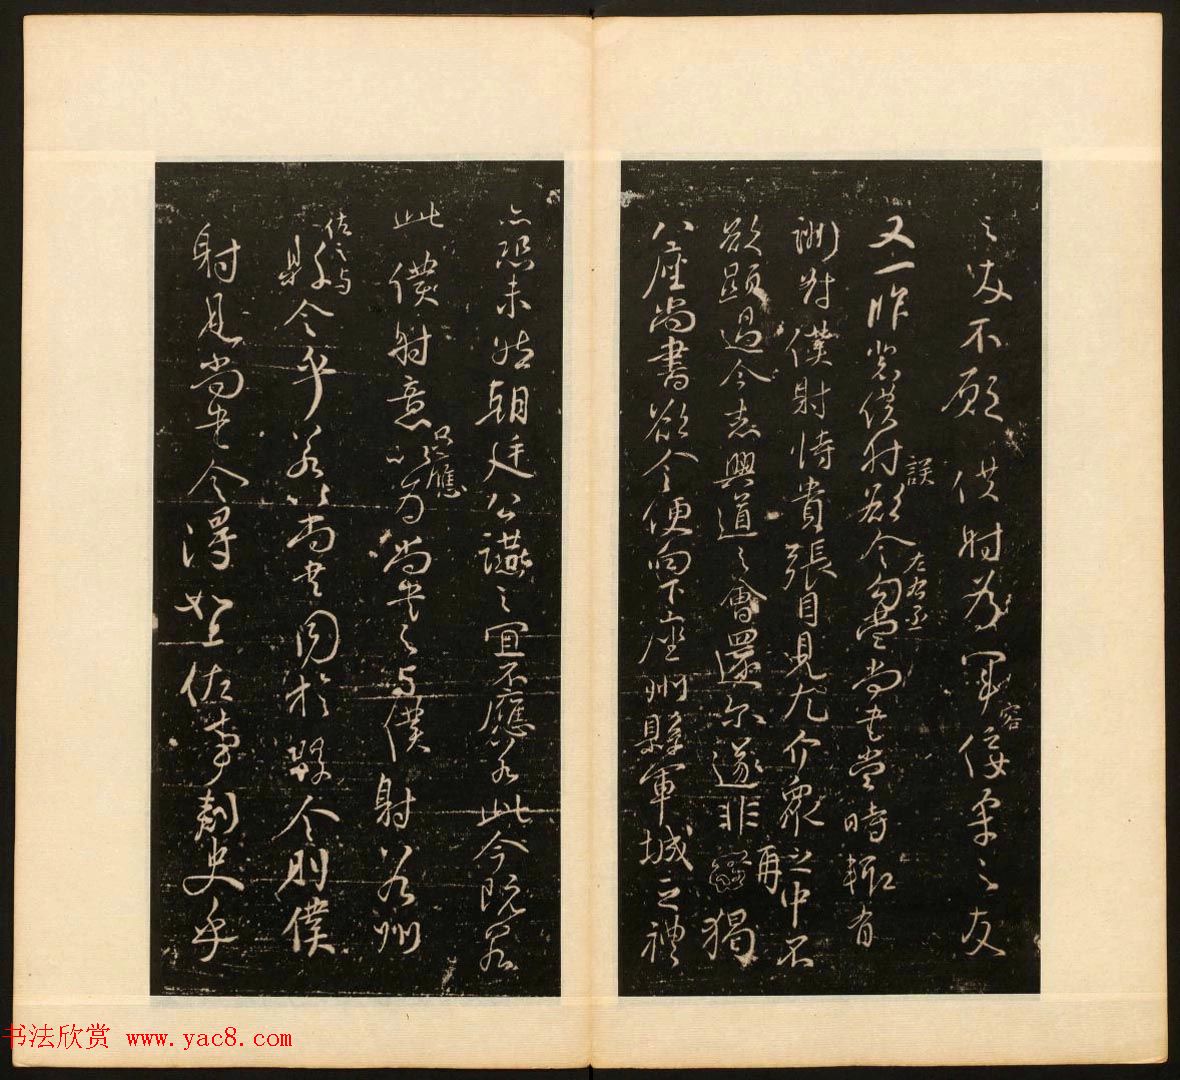 之友不願僕射為軍容佞柔之友
又一昨裴僕射誤欲令左右丞勾當尚書當時輒有
酬對僕射恃貴張目見尤介衆之中不
欲顯過今者興道之會還爾遂非再猲
八座尚書欲令便向下座州縣軍城之禮
亦恐未然朝廷公讌之宜不應若此今既若
此僕射意只應以為尚書之与僕射若州
佐之与縣令乎若以尚書同於縣令則僕
射見尚書令得如上佐事刺史乎
书法欣赏 www.yac8.com